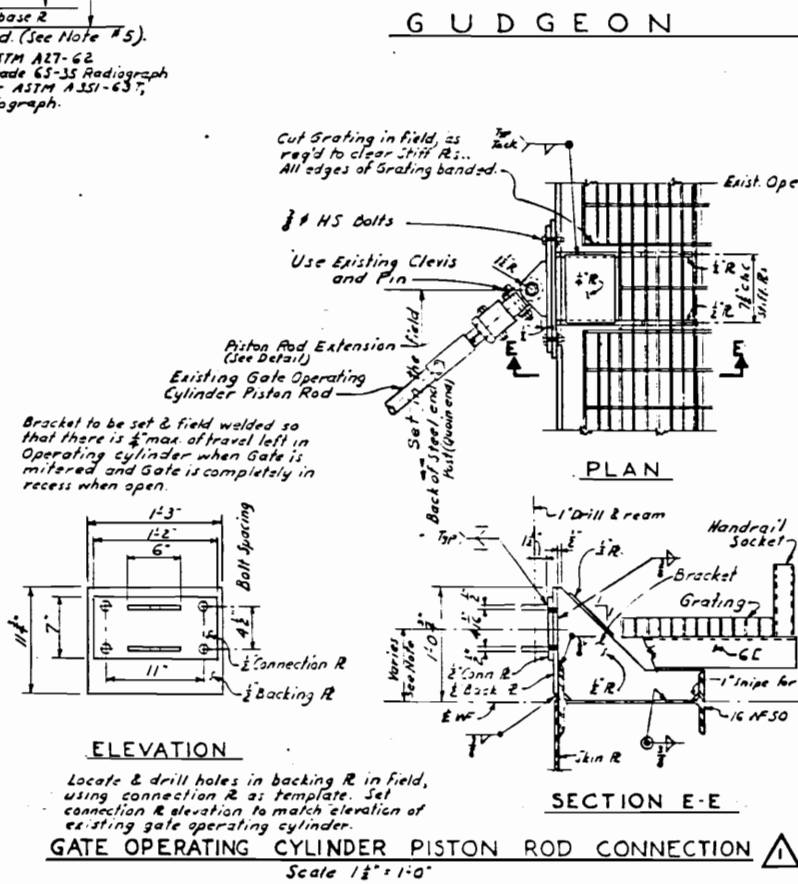 base ⅊
d. (See Note #5).
ASTM A27-62
ade 65-35 Radiograph
ASTM A351-63T,
ograph.
GUDGEON
Cut Grating in field, as
req'd to clear Stiff ⅊s..
All edges of Grating banded.
Typ
Tack
Exist. Ope
HS Bolts
Use Existing Clevis
and Pin
Piston Rod Extension
(See Detail)
Existing Gate Operating
Cylinder Piston Rod
Set in the field
Back of Steel end
Post (Quoin end)
1½"⅊
½"⅊
½"⅊
7½" c to c
Stiff. ⅊s
E
E
PLAN
Bracket to be set & field welded so
that there is ¼" max. of travel left in
Operating cylinder when Gate is
mitered and Gate is completely in
recess when open.
1'-3"
1'-2"
6"
Bolt Spacing
7"
4½"
11"
½" Connection ⅊
½" Backing ⅊
ELEVATION
Locate & drill holes in backing ⅊ in field,
using connection ⅊ as template. Set
connection ⅊ elevation to match elevation of
existing gate operating cylinder.
1" Drill & ream
Typ.
½"⅊
Handrail
Socket
Bracket
Grating
Varies
See Note
½" Conn ⅊
½ Back ⅊
½"⅊
6[
1" Snipe for
℄ WF
Skin ⅊
SECTION E-E
GATE OPERATING CYLINDER PISTON ROD CONNECTION 1
Scale 1½" = 1'-0"